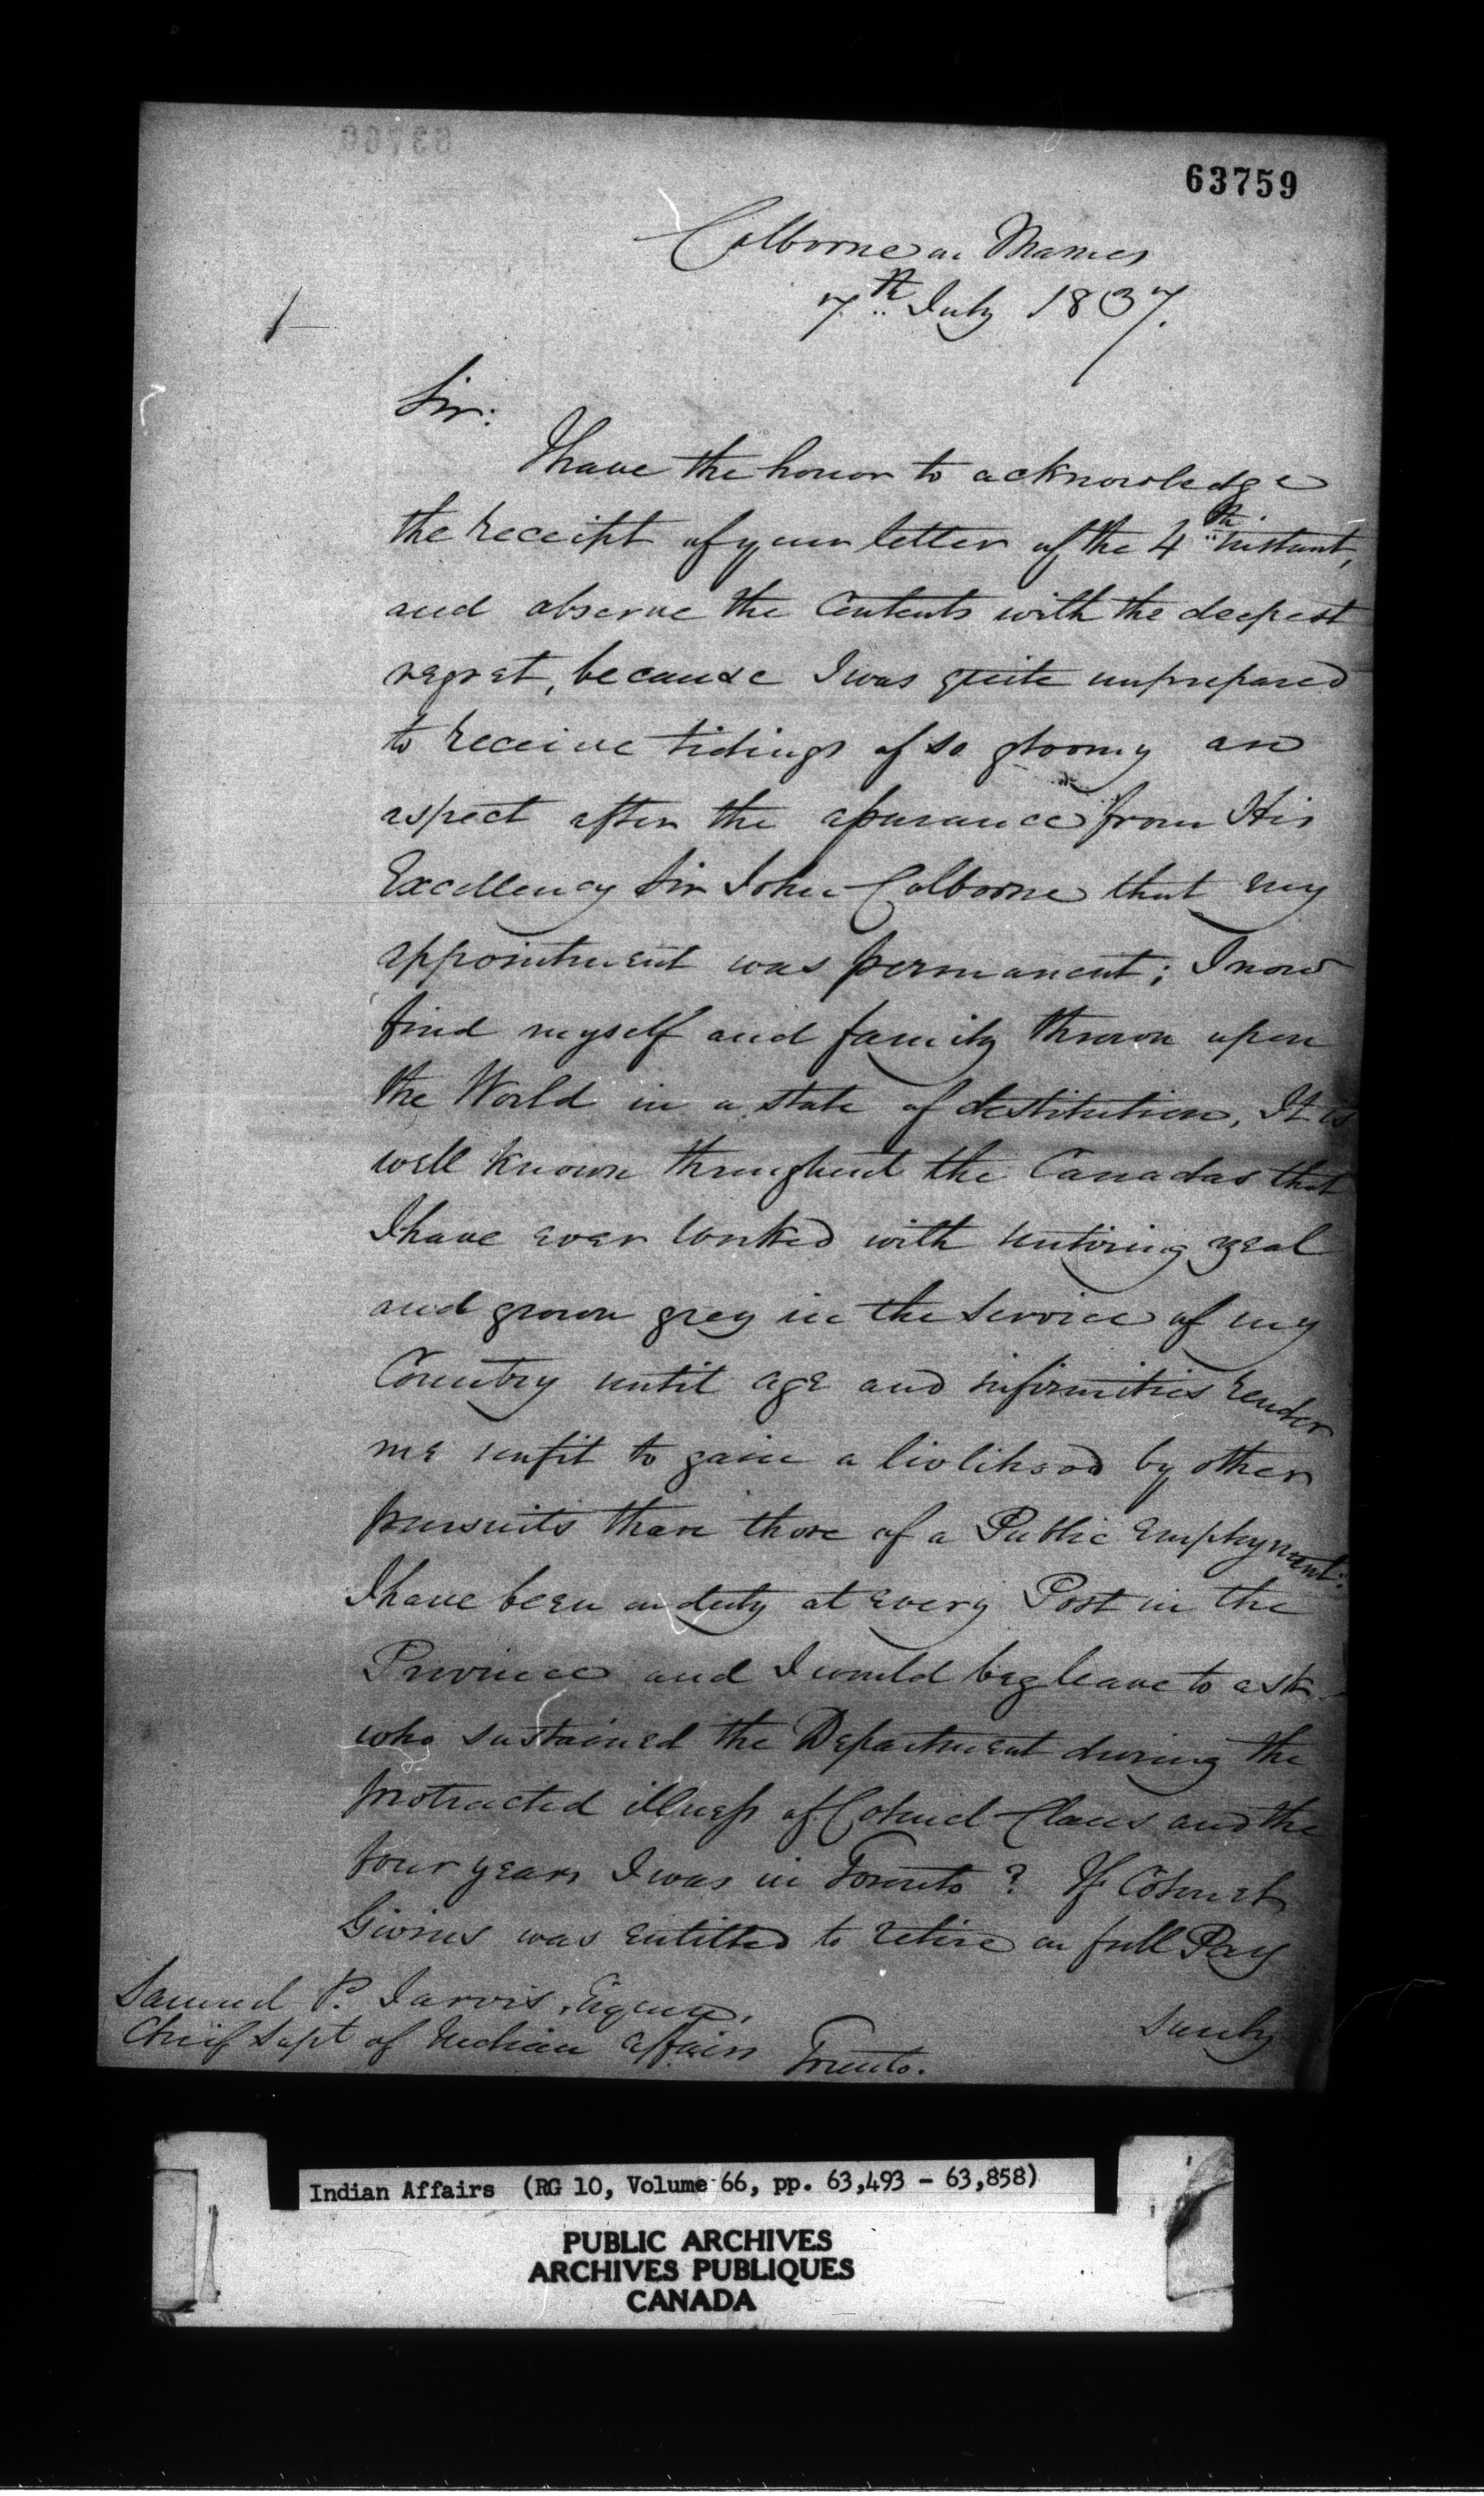 63759
Colborne on Thames
7th July 1837.
Sir:
I have the honor to acknowledge
the receipt of your letter of the 4th instant,
and observe the Contents with the deepest
regret, because I was quite unprepared
to receive tidings of so gloomy an
aspect after the assurance from His
Excellency Sir John Colborne that my
appointment was permanent; I now
find myself and family thrown upon
the World in a state of destitution, It is
well known throughout the Canadas that
I have ever worked with untiring zeal
and grown grey in the Service of my
Country until age and infirmities render
me unfit to gain a livlihood by other
pursuits than those of a Public employment.
I have been on duty at every Post in the
Province and I would beg leave to ask
who sustained the Department during the
protracted illness of Colonel Claus and the
four years I was in Toronto? If Colonel
Givins was entitled to retire on full Pay
Surely
Samuel P. Jarvis, Esquire,
Chief Supt of Indian Affairs
Toronto.
Indian Affairs (RG 10, Volume 66, pp. 63,493 - 63,858)
PUBLIC ARCHIVES
ARCHIVES PUBLIQUES
CANADA